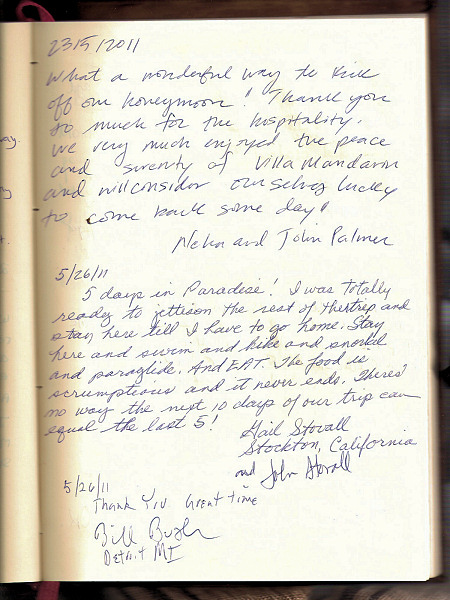 23/5/2011
What a wonderful way to kick
off our honeymoon! Thank you
so much for the hospitality.
We very much enjoyed the peace
and serenity of Villa Mandarin
and will consider ourselves lucky
to come back some day!
and John Palmer
5/26/11
5 days in Paradise! I was totally
ready to jettison the rest of the trip and
stay here till I have to go home. Stay
here and swim and hike and snorkel
and paraglide. And EAT. The food is
scrumptious and it never ends. There's
no way the next 10 days of our trip can
equal the last 5!
Gail Stovall
Stockton, California
and John Stovall
5/26/11
Thank You Great time
Bill Bush
Detroit MI